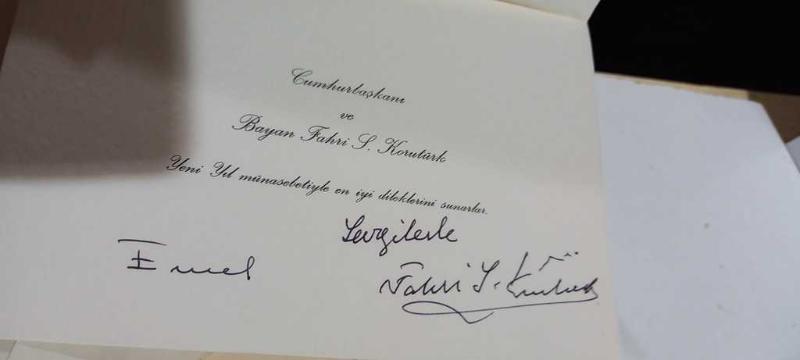 Cumhurbaşkanı
ve
Bayan Fahri S. Korutürk
Yeni Yıl münasebetiyle en iyi dileklerini sunarlar.
Sevgilerle
Emel
Fahri S. Korutürk